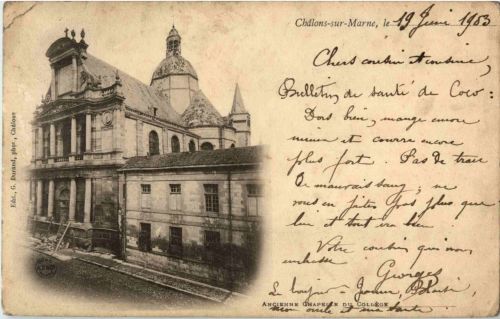 Châlons-sur-Marne, le 19 Juin 1903
Chers cousin et cousine,
Bulletin de santé de Coco :
Dors bien, mange encore
mieux et courre encore
plus fort. Pas de
mauvais sang ; ne
vous en faites pas plus que
lui et tout ira bien
Votre cousin qui vous
embrasse
Georges
Le bonjour à
mon oncle et ma tante.
ANCIENNE CHAPELLE DU COLLÈGE
Edit. G. Durand, phot., Châlons